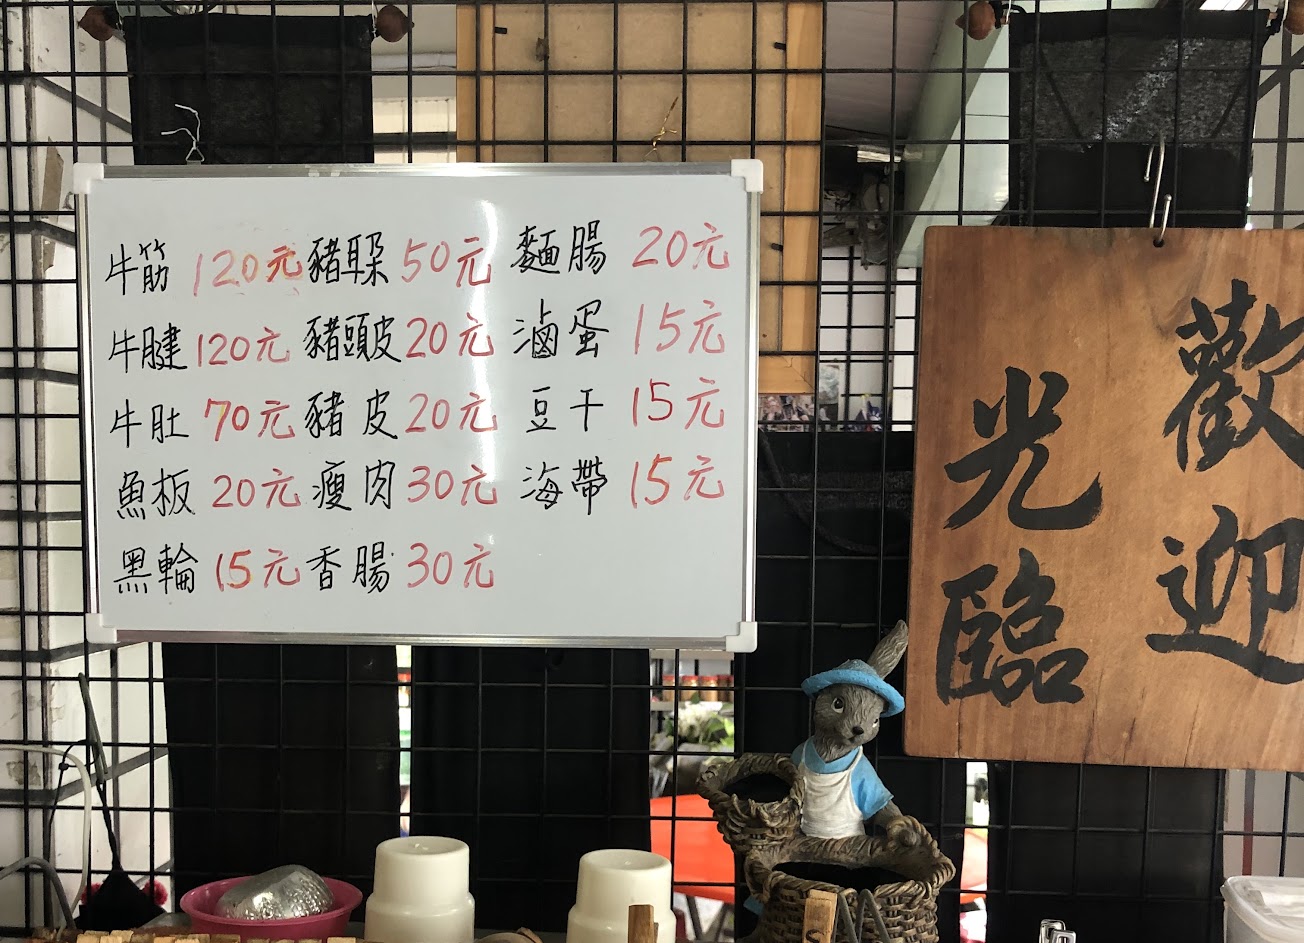 牛筋 120元 豬耳朵 50元 麵腸 20元
牛腱 120元 豬頭皮 20元 滷蛋 15元
牛肚 70元 豬皮 20元 豆干 15元
魚板 20元 瘦肉 30元 海帶 15元
黑輪 15元 香腸 30元
歡迎
光臨